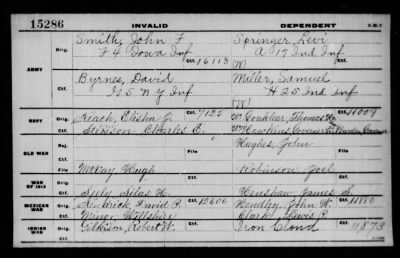 15286 INVALID DEPENDENT
ARMY
Orig. Smith, John F Springer, Levi
F 4 Iowa Inf A 17 Ind Inf
Ctf. 16113 (W)
Orig. Byrnes, David Miller, Samuel
N Y Inf H 25 Ind Inf
Ctf. (W)
NAVY
Orig. Elisha J. Ctf. 7125 Thomas Ctf. 11009
Ctf. Stinson, Charles Hawkins,
OLD WAR
Rej. Hughes, John
Ctf. File File
WAR OF 1812
Orig. McKay, Hugh Robinson, Joel
Ctf. Seely, Silas H. Henshaw, James S.
MEXICAN WAR
Orig. David P. Ctf. 12606 Hendley, John W. Ctf. 11880
Ctf. Minor, Wiltshire Clark, Lewis P.
INDIAN WAR
Orig. Gilkison, Robert W. Iron Cloud
Ctf. 11873